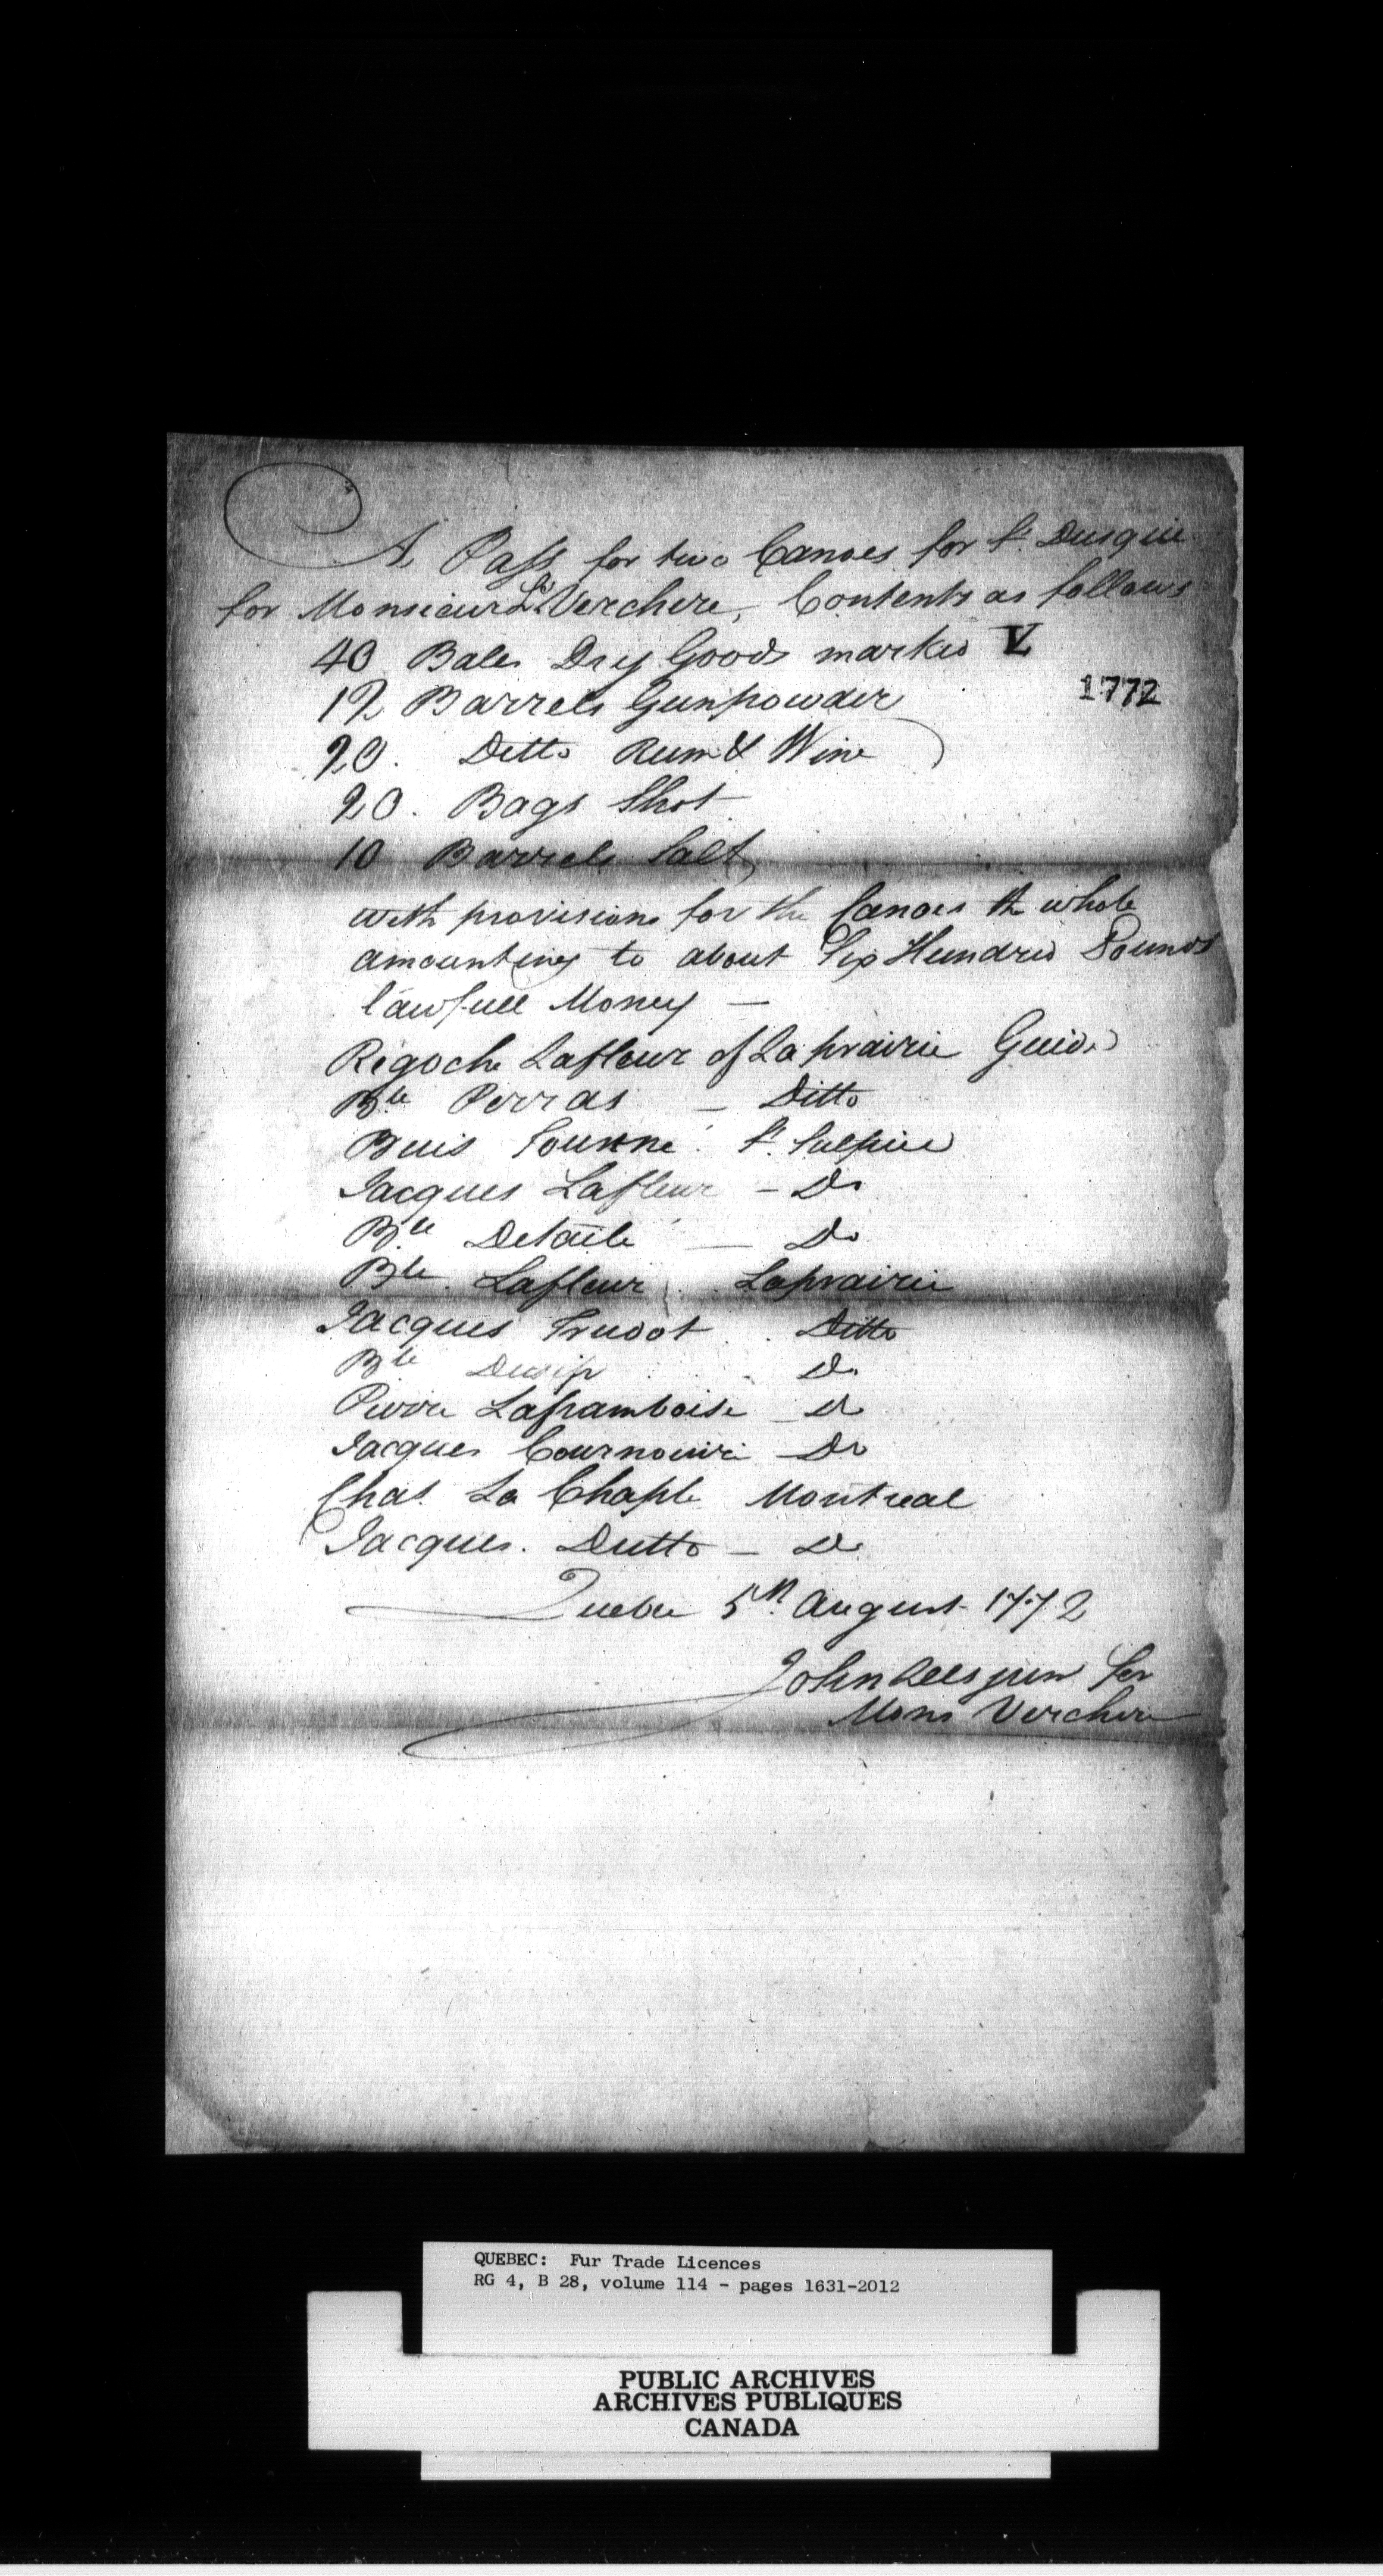 A Pass for two Canoes for St. Dusquie
for Monsieur La Verchere, Contents as follows
40 Bales Dry Goods marked V
1772
12 Barrels Gunpowder
20. Ditto Rum & Wine
20. Bags Shot
10 Barrels Salt
with provisions for the Canoes the whole
amounting to about Six Hundred Pounds
lawfull Money —
Regoche Lafleur of Laprairie Guide
Bte Perras — Ditto
St. Sulpice
Jacques Lafleur — Do
Bte Detaile — Do
Bte Lafleur Laprairie
Jacques Trudot Ditto
Bte Do
Pierre Laframboise Do
Jacques Do
Chas. La Chaple Montreal
Jacques. Dutto — Do
Quebec 5th August 1772
John Lees junr for
Mons Verchere
QUEBEC: Fur Trade Licences
RG 4, B 28, volume 114 - pages 1631-2012
PUBLIC ARCHIVES
ARCHIVES PUBLIQUES
CANADA